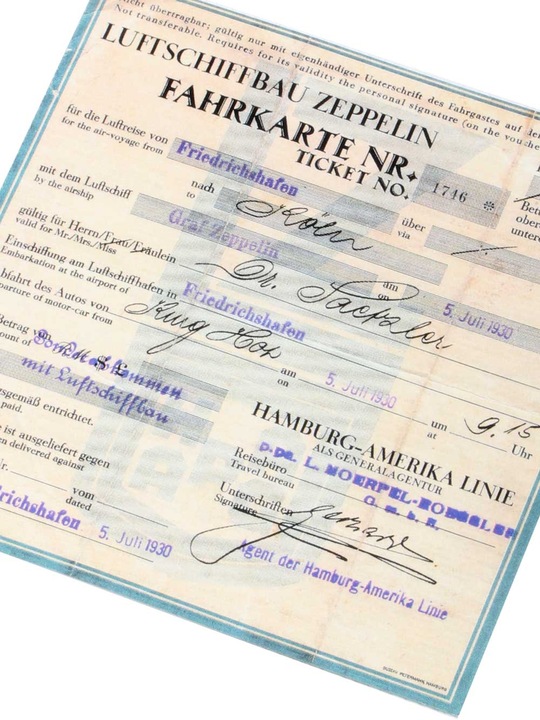 nicht übertragbar; gültig nur mit eigenhändiger Unterschrift des Fahrgastes auf der
Not transferable. Requires for its validity the personal signature (on the
LUFTSCHIFFBAU ZEPPELIN
FAHRKARTE NR.
TICKET NO. 1746
für die Luftreise von Friedrichshafen nach Köln über
for the air-voyage from to via
mit dem Luftschiff Graf Zeppelin am 5. Juli 1930
by the airship on
gültig für Herrn/Frau/Fräulein Dr.
valid for Mr./Mrs./Miss
Einschiffung am Luftschiffhafen in Friedrichshafen
Embarkation at the airport of
bfahrt des Autos von am 5. Juli 1930 um 9.15 Uhr
parture of motor-car from on at
Betrag
ount of
mit Luftschiffbau
sgemäß entrichtet.
paid.
e ist ausgeliefert gegen
en delivered against
r.
vom
dated
richshafen 5. Juli 1930
HAMBURG-AMERIKA LINIE
ALS GENERALAGENTUR
Reisebüro
Travel bureau
G. m. b. H.
Unterschriften
Signature
Agent der Hamburg-Amerika Linie